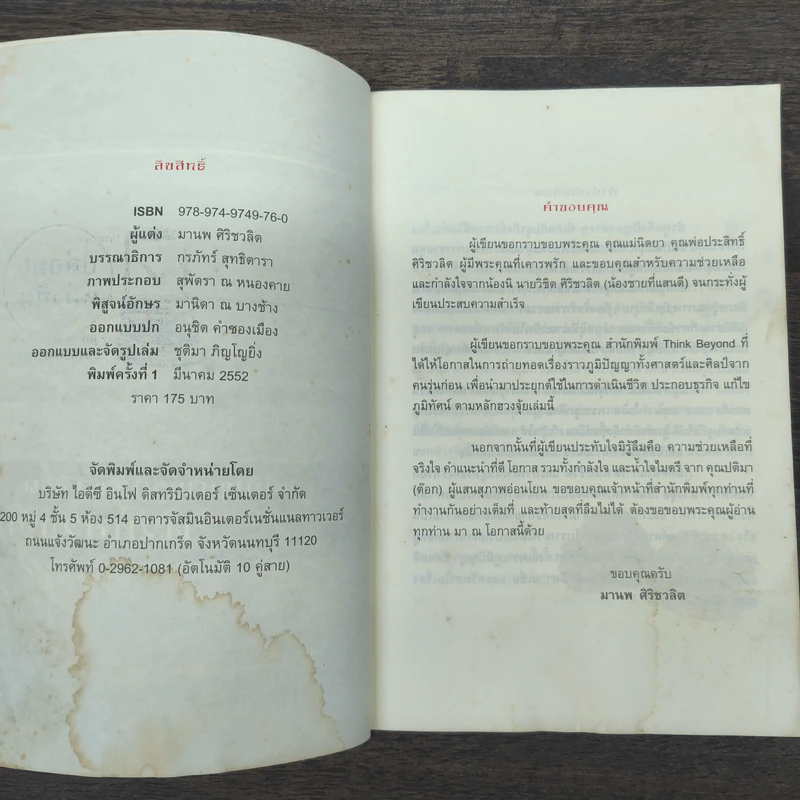 ลิขสิทธิ์
ISBN 978-974-9749-76-0
ผู้แต่ง มานพ ศิริชวลิต
บรรณาธิการ กรภัทร์ สุทธิดารา
ภาพประกอบ สุพัตรา ณ หนองคาย
พิสูจน์อักษร มานิดา ณ บางช้าง
ออกแบบปก อนุชิต คำซองเมือง
ออกแบบและจัดรูปเล่ม ชุติมา ภิญโญยิ่ง
พิมพ์ครั้งที่ 1 มีนาคม 2552
ราคา 175 บาท
จัดพิมพ์และจัดจำหน่ายโดย
บริษัท ไอดีซี อินโฟ ดิสทริบิวเตอร์ เซ็นเตอร์ จำกัด
200 หมู่ 4 ชั้น 5 ห้อง 514 อาคารจัสมินอินเตอร์เนชั่นแนลทาวเวอร์
ถนนแจ้งวัฒนะ อำเภอปากเกร็ด จังหวัดนนทบุรี 11120
โทรศัพท์ 0-2962-1081 (อัตโนมัติ 10 คู่สาย)
คำขอบคุณ
ผู้เขียนขอกราบขอบพระคุณ คุณแม่นิตยา คุณพ่อประสิทธิ์
ศิริชวลิต ผู้มีพระคุณที่เคารพรัก และขอบคุณสำหรับความช่วยเหลือ
และกำลังใจจากน้องนิ นายวิชิต ศิริชวลิต (น้องชายที่แสนดี) จนกระทั่งผู้
เขียนประสบความสำเร็จ
ผู้เขียนขอกราบขอบพระคุณ สำนักพิมพ์ Think Beyond ที่
ได้ให้โอกาสในการถ่ายทอดเรื่องราวภูมิปัญญาทั้งศาสตร์และศิลป์จาก
คนรุ่นก่อน เพื่อนำมาประยุกต์ใช้ในการดำเนินชีวิต ประกอบธุรกิจ แก้ไข
ภูมิทัศน์ ตามหลักฮวงจุ้ยเล่มนี้
นอกจากนั้นที่ผู้เขียนประทับใจมิรู้ลืมคือ ความช่วยเหลือที่
จริงใจ คำแนะนำที่ดี โอกาส รวมทั้งกำลังใจ และน้ำใจไมตรี จาก คุณปติมา
(ต๊อก) ผู้แสนสุภาพอ่อนโยน ขอขอบคุณเจ้าหน้าที่สำนักพิมพ์ทุกท่านที่
ทำงานกันอย่างเต็มที่ และท้ายสุดที่ลืมไม่ได้ ต้องขอขอบพระคุณผู้อ่าน
ทุกท่าน มา ณ โอกาสนี้ด้วย
ขอบคุณครับ
มานพ ศิริชวลิต